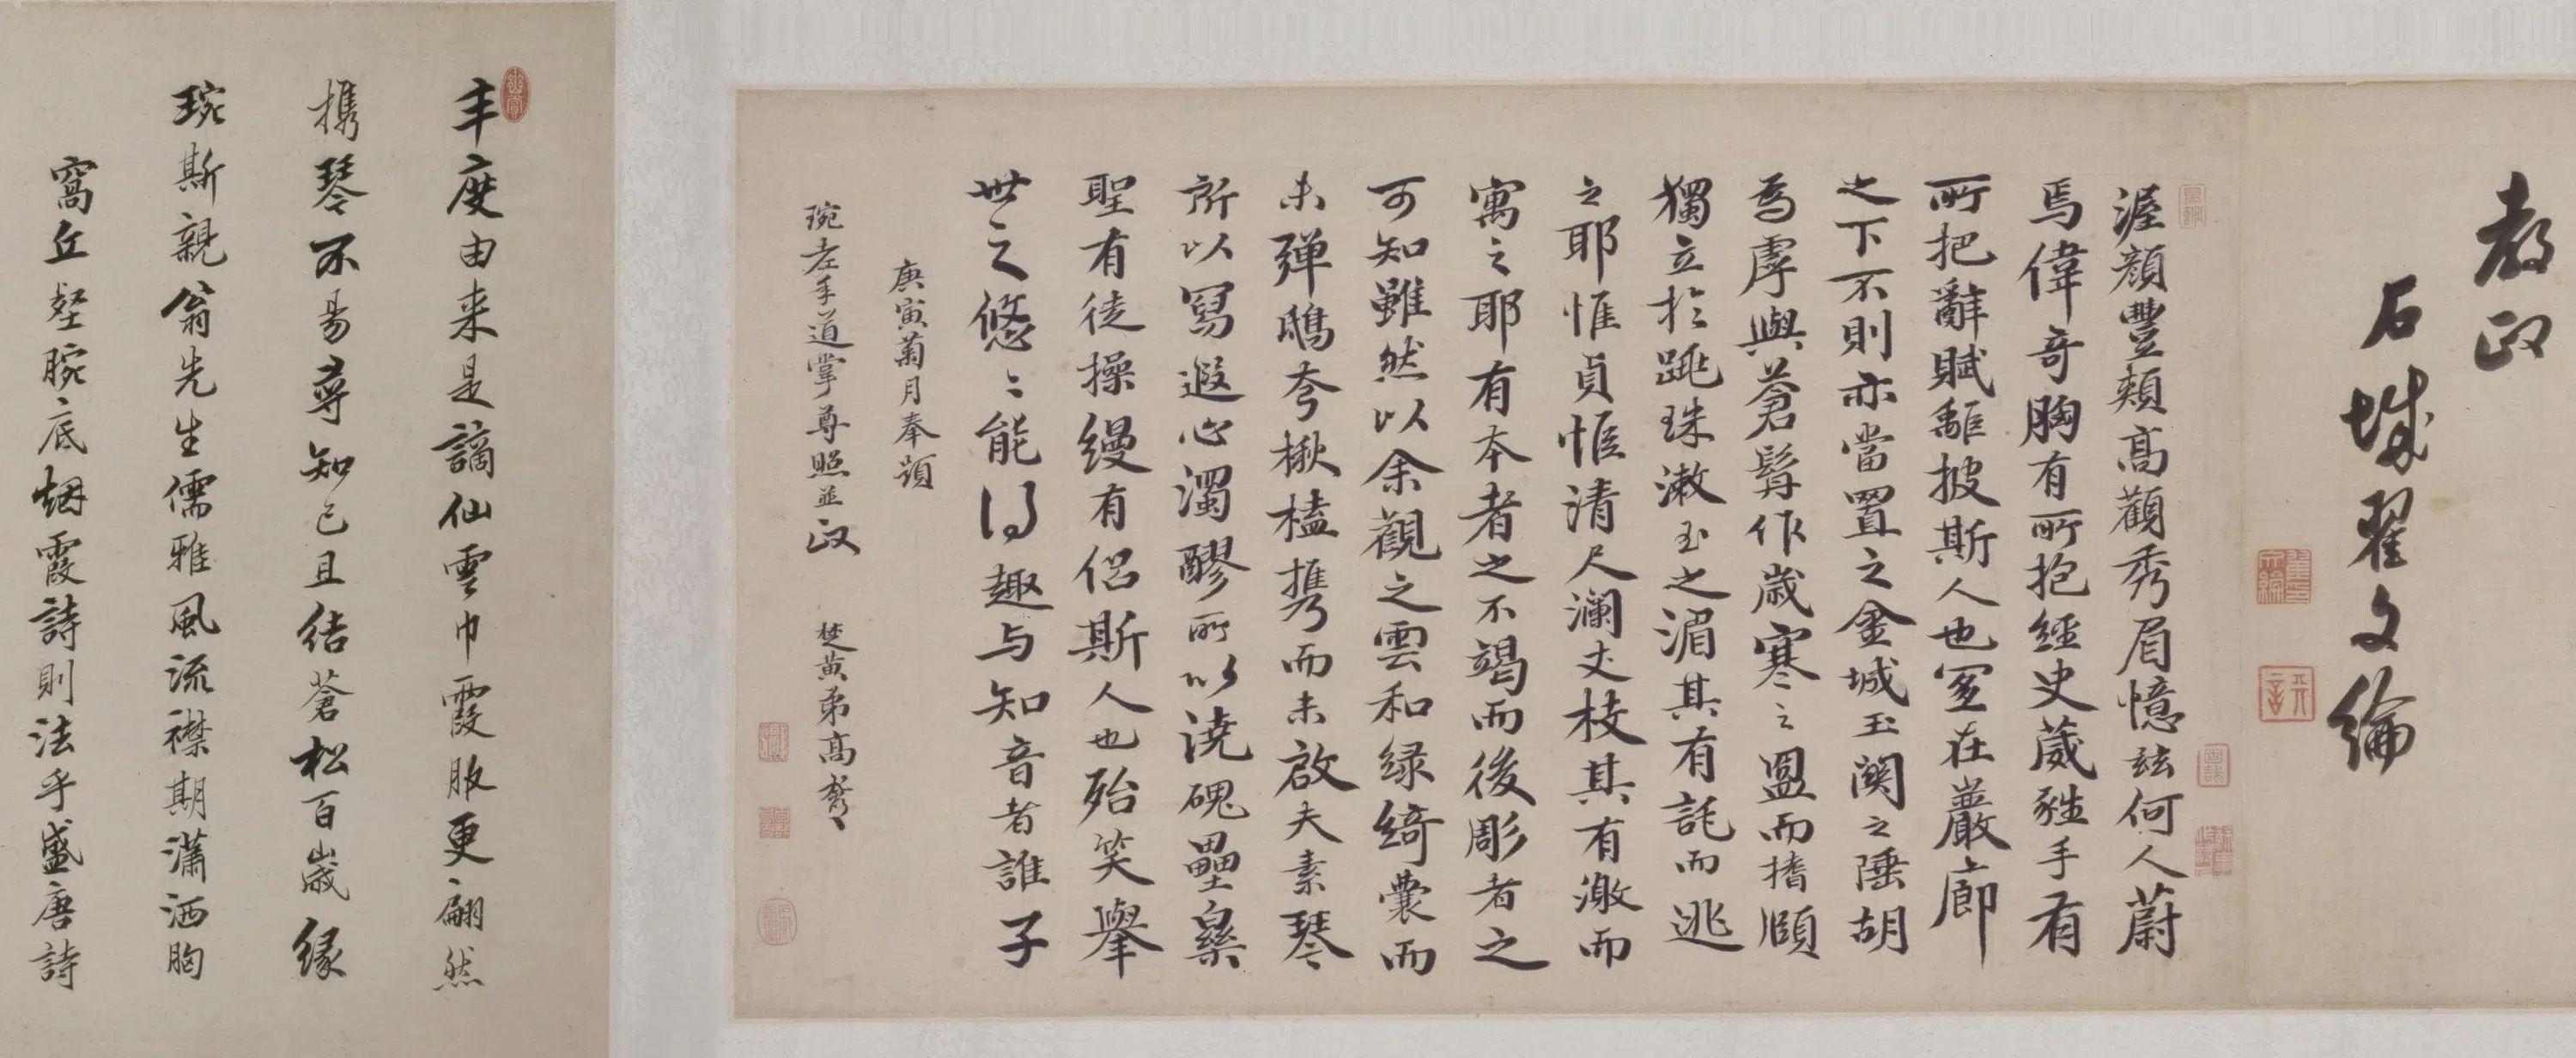 教政
石城翟文綸
渥顏豐頰高顴秀眉憶玆何人蔚
焉偉奇胸有所抱經史葳蕤手有
所把辭賦離披斯人也寘在巖廊
之下不則亦當置之金城玉関之陲胡
為虖與蒼髯作歲寒之盟而搘頤
獨立於跳珠漱玉之湄其有託而逃
之耶惟貞惟清尺瀾丈枝其有激而
寓之耶有本者之不竭而後彫者之
可知雖然以余觀之雲和綠綺囊而
未彈鴟夸楸榼攜而未啟夫素琴
所以寫遐心濁醪所以澆磈壘奚
聖有徒操縵有侶斯人也殆笑舉
世之悠〻能得趣与知音者誰子
庚寅菊月奉題
琬老年道掌尊照並政 楚黃弟高
丰度由来是謫仙雲巾霞服更翩然
攜琴不易尋知己且結蒼松百歲緣
琬斯親翁先生儒雅風流襟期瀟洒胸
窩丘壑腕底烟霞詩則法乎盛唐詩